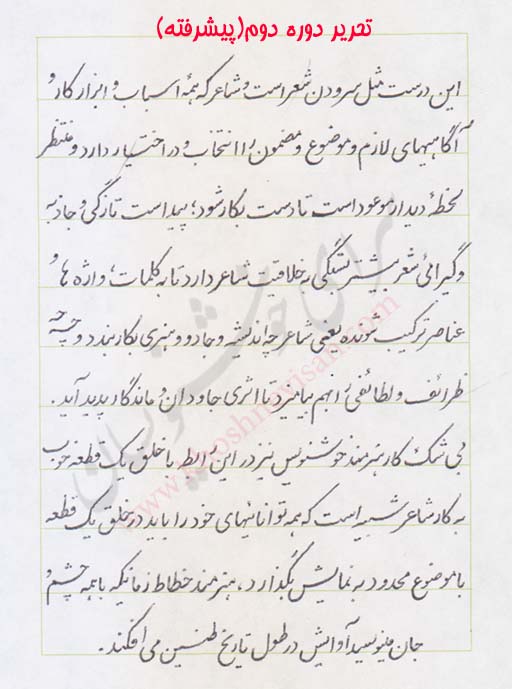 تحریر دوره دوم(پیشرفته)
این درست مثل سرودن شعر است و شاعر که همهٔ اسباب و ابزار کار و
آگاهیهای لازم و موضوع و مضمون را انتخاب و در اختیار دارد و منتظر
لحظهٔ دیدار موعود است تا دست بکار شود؛ پیداست تازگی و جاذبه
و گیرائی شعر بیشتر بستگی به خلاقیت شاعر دارد تا به کلمات؛ واژه ها و
عناصر ترکیب شونده یعنی شاعر چه اندیشه و جادو و هنری بکار بندد و چه
ظرائف و لطائفی را بهم بیامیزد تا اثری جاودان و ماندگار پدید آید.
بی شک کار هنرمند خوشنویس نیز در این رابطه با خلق یک قطعه خوب
به کار شاعر شبیه است که همه توانائیهای خود را باید در خلق یک قطعه
با موضوع محدود به نمایش بگذارد، هنرمند خطاط زمانیکه با همه چشم و
جان مینویسد آوایش در طول تاریخ طنین می افکند.
برای خوشنویسان
www.khoshnevisan.com